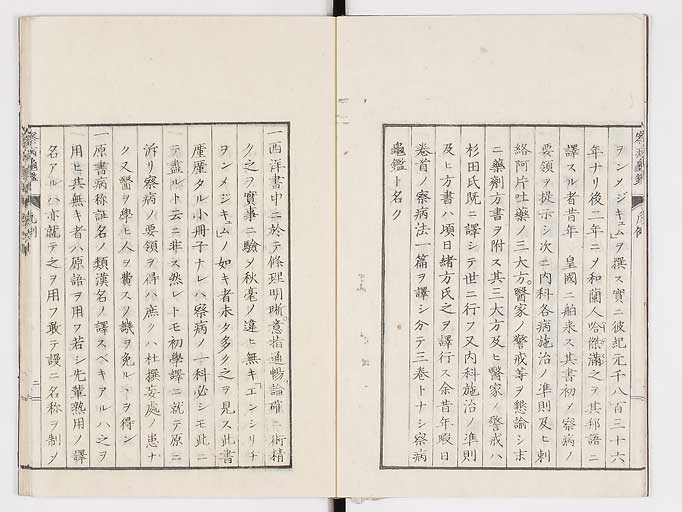 ヲンメジキュム」ヲ撰ス實ニ彼紀元千八百三十六
年ナリ後二年ニメ和蘭人哈傑滿之ヲ其邦語ニ
譯スル者昔年 皇國ニ舶来ス其書初ヲ察病ノ
要領ヲ提示シ次ニ内科各病施治ノ準則及ヒ刺
絡阿片吐藥ノ三大方醫家ノ警戒等ヲ懇諭シ末
ニ藥劑方書ヲ附ス其三大方及ヒ醫家ノ警戒ハ
杉田氏既ニ譯シテ世ニ行フ又内科施治ノ準則
及ヒ方書ハ頃日緒方氏之ヲ譯行ス余昔年暇日
卷首ノ察病法一篇ヲ譯シ分テ三卷トナシ察病
龜鑑ト名ク
一西洋書中ニ於テ條理明晰意指通暢論確ニ術精
ク之ヲ實事ニ驗メ秋毫ノ違ヒ無キ「エンシリヂ
ヲンメジキュム」ノ如キ者未タ多ク之ヲ見ス此書
僅タル小冊子ナレハ察病ノ一科必シモ此ニ
テ盡ルト云ニ非ス然レトモ初學譯ニ就テ原ニ
泝リ察病ノ要領ヲ得ハ庶クハ杜撰妄處ノ患ナ
ク又醫ヲ學ヒ人ヲ費スノ譏ヲ免ルヽヲ得ン
一原書病称証名ノ類漢名ノ譯スベキアルハ之ヲ
用ヒ其無キ者ハ原語ヲ用フ若シ先輩熟用ノ譯
名アルハ亦就テ之ヲ用フ敢テ謾ニ名称ヲ制シ